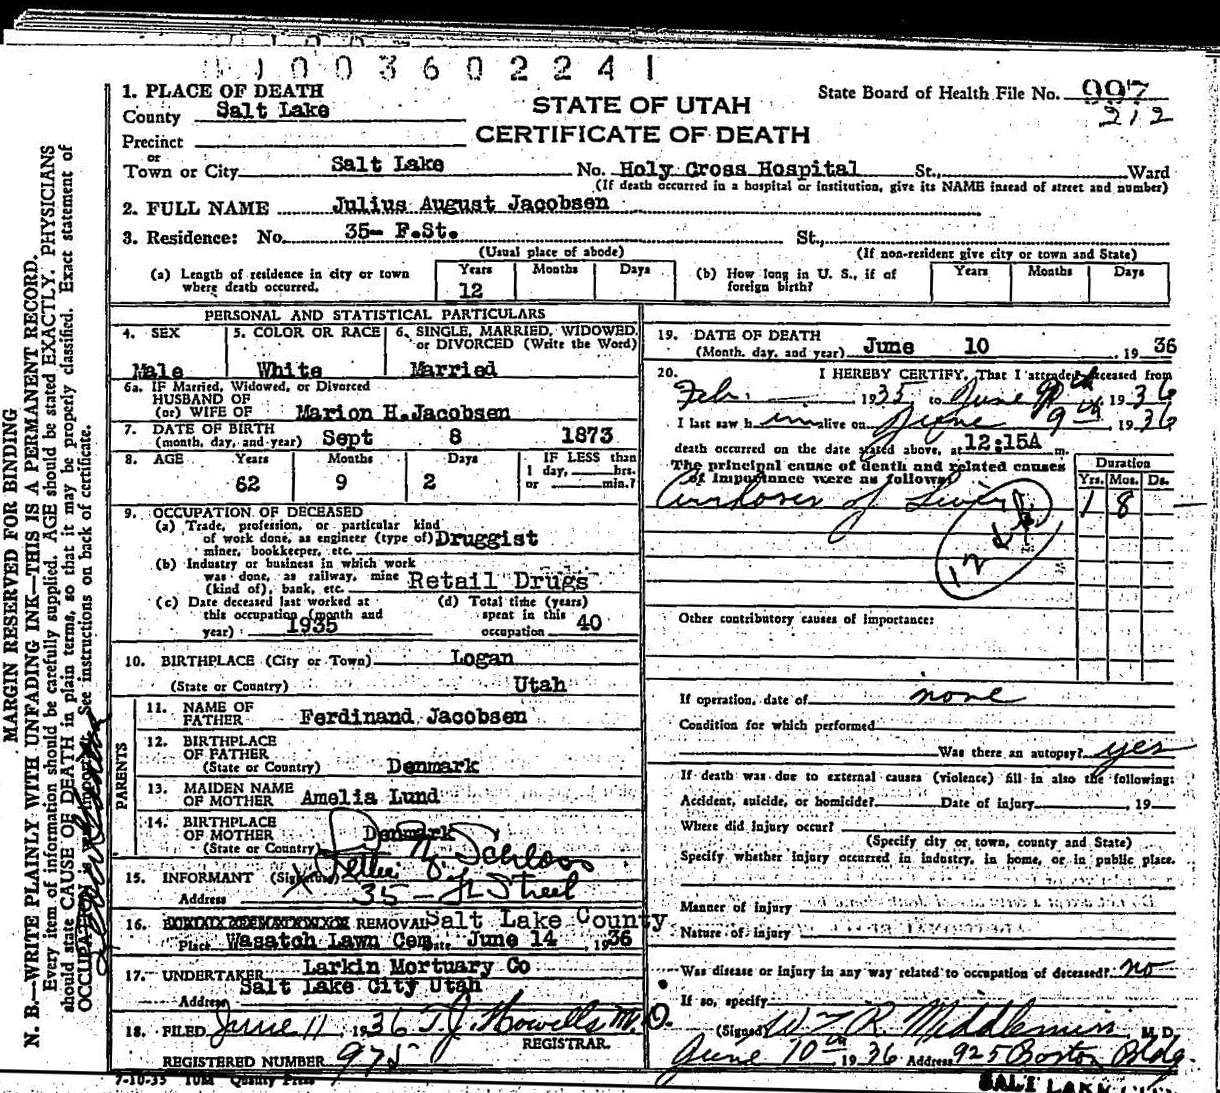 1003602241
1. PLACE OF DEATH
County Salt Lake
STATE OF UTAH
CERTIFICATE OF DEATH
State Board of Health File No. 997
212
Precinct
or
Town or City Salt Lake No. Holy Cross Hospital St., Ward
(If death occurred in a hospital or institution, give its NAME instead of street and number)
2. FULL NAME Julius August Jacobsen
3. Residence: No. 35- F.St. St.,
(Usual place of abode) (If non-resident give city or town and State)
(a) Length of residence in city or town where death occurred. Years 12 Months Days
(b) How long in U. S., if of foreign birth? Years Months Days
PERSONAL AND STATISTICAL PARTICULARS
4. SEX Male
5. COLOR OR RACE White
6. SINGLE, MARRIED, WIDOWED, or DIVORCED (Write the Word) Married
6a. IF Married, Widowed, or Divorced
HUSBAND OF
(or) WIFE OF Marion H.Jacobsen
7. DATE OF BIRTH
(month, day, and year) Sept 8 1873
8. AGE Years 62 Months 9 Days 2 IF LESS than 1 day, hrs. or min.?
9. OCCUPATION OF DECEASED
(a) Trade, profession, or particular kind
of work done, as engineer (type of) Druggist
miner, bookkeeper, etc.
(b) Industry or business in which work
was done, as railway, mine Retail Drugs
(kind of), bank, etc.
(c) Date deceased last worked at
this occupation (month and
year) 1935
(d) Total time (years)
spent in this
occupation 40
10. BIRTHPLACE (City or Town) Logan
(State or Country) Utah
PARENTS
11. NAME OF
FATHER Ferdinand Jacobsen
12. BIRTHPLACE
OF FATHER
(State or Country) Denmark
13. MAIDEN NAME
OF MOTHER Amelia Lund
14. BIRTHPLACE
OF MOTHER Denmark
(State or Country)
15. INFORMANT (Signature) Schloss
Address 35 - Street
16. REMOVAL Salt Lake County
Place Wasatch Lawn Cem Date June 14, 1936
17. UNDERTAKER Larkin Mortuary Co
Address Salt Lake City Utah
18. FILED June 11, 1936 T.J. Howells M.D.
REGISTRAR.
REGISTERED NUMBER 975
7-10-35 10M Quality Press
19. DATE OF DEATH
(Month, day, and year) June 10, 1936
20. I HEREBY CERTIFY, That I attended deceased from
Feb. 1935 to June 9th, 1936
I last saw him alive on June 9th 1936
death occurred on the date stated above, at 12:15A m.
The principal cause of death and related causes
of importance were as follows:
Duration
Yrs. Mos. Ds.
of Liver 1 8
12
Other contributory causes of importance:
If operation, date of none
Condition for which performed
Was there an autopsy? yes
If death was due to external causes (violence) fill in also the following:
Accident, suicide, or homicide? Date of injury , 19
Where did injury occur?
(Specify city or town, county and State)
Specify whether injury occurred in industry, in home, or in public place.
Manner of injury
Nature of injury
Was disease or injury in any way related to occupation of deceased? no
If so, specify
(Signed) R. Middlemiss, M. D.
June 10th 1936 Address 925 Boston Bldg.
SALT LAKE CITY
MARGIN RESERVED FOR BINDING
N. B.—WRITE PLAINLY WITH UNFADING INK—THIS IS A PERMANENT RECORD.
Every item of information should be carefully supplied. AGE should be stated EXACTLY. PHYSICIANS
should state CAUSE OF DEATH in plain terms, so that it may be properly classified. Exact statement of
OCCUPATION is very important. See instructions on back of certificate.